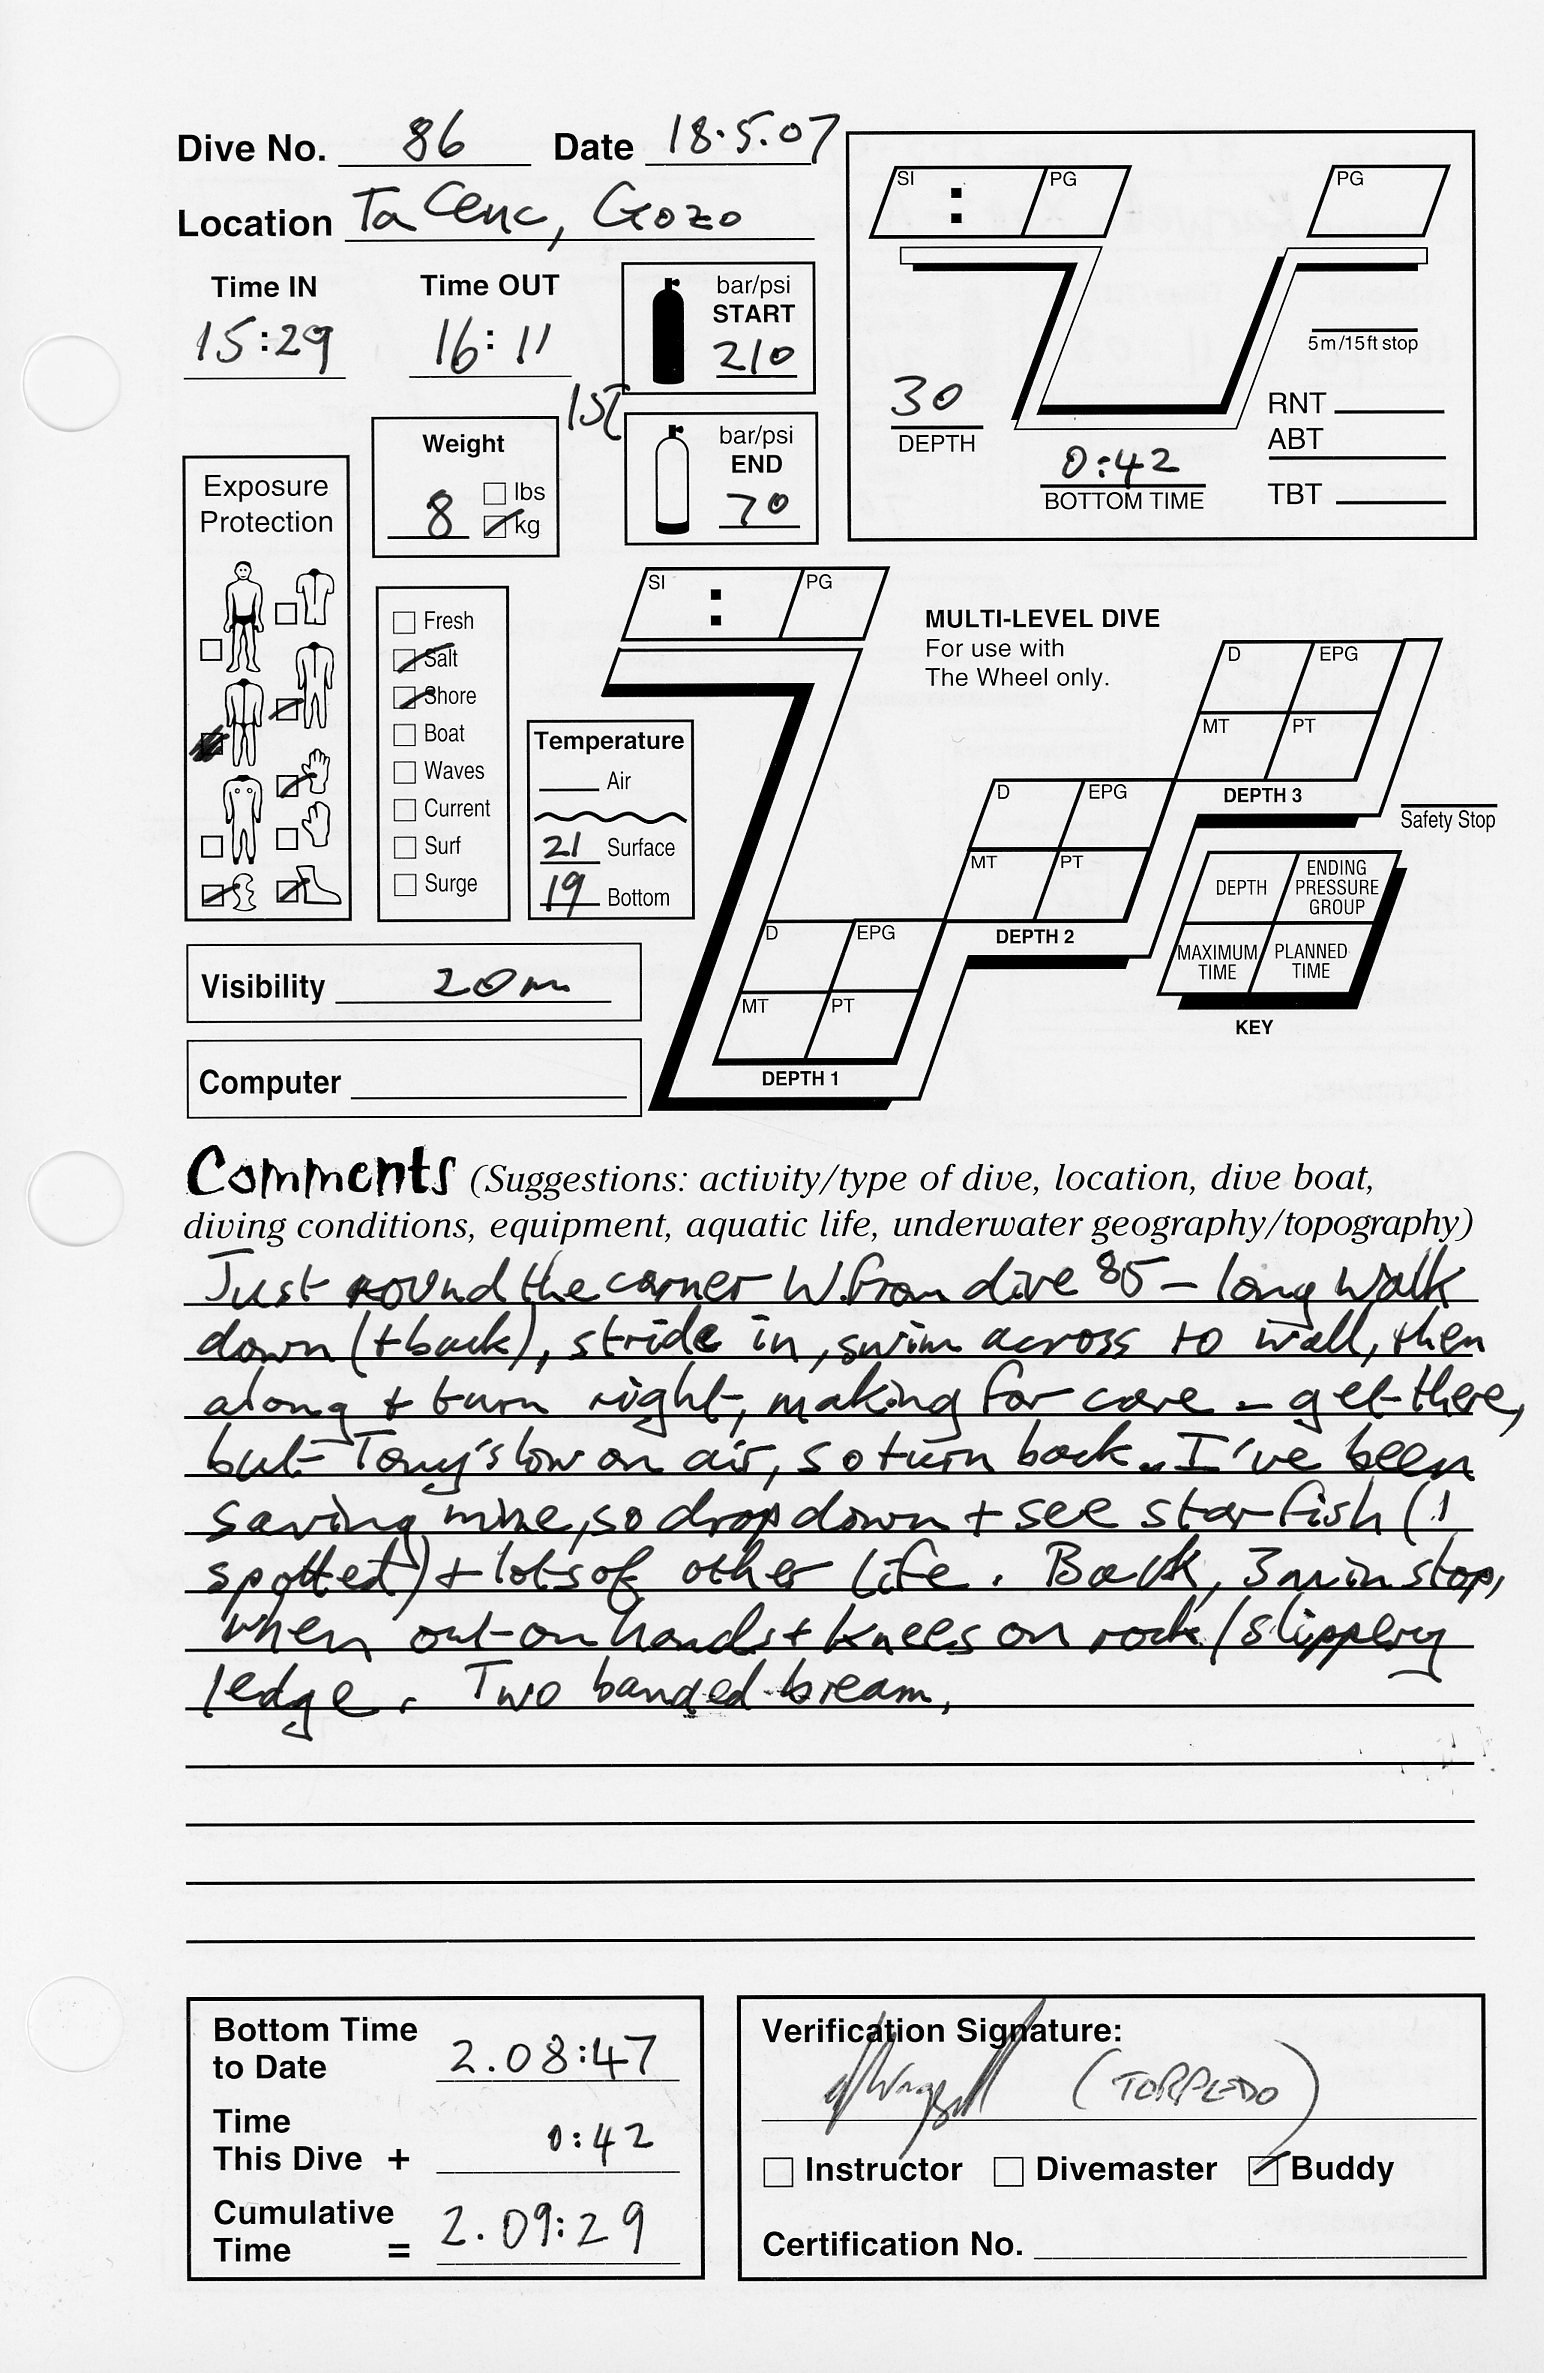 Dive No. 86 Date 18.5.07
Location Ta Cenc, Gozo
Time IN Time OUT
15:29 16:11
bar/psi
START
210
15l
bar/psi
END
70
Weight
8
lbs
kg
Exposure
Protection
Fresh
Salt
Shore
Boat
Waves
Current
Surf
Surge
Temperature
Air
21 Surface
19 Bottom
Visibility 20m
Computer
SI : PG
PG
5m/15ft stop
30
DEPTH
0:42
BOTTOM TIME
RNT
ABT
TBT
SI : PG
MULTI-LEVEL DIVE
For use with
The Wheel only.
D EPG
MT PT
DEPTH 3
Safety Stop
D EPG
MT PT
DEPTH 2
D EPG
MT PT
DEPTH 1
DEPTH
ENDING
PRESSURE
GROUP
MAXIMUM
TIME
PLANNED
TIME
KEY
Comments (Suggestions: activity/type of dive, location, dive boat,
diving conditions, equipment, aquatic life, underwater geography/topography)
Just round the corner W. from dive 85 – long walk
down (+ back), stride in, swim across to wall, then
along + turn right, making for cave – get there,
but Tony's low on air, so turn back.. I've been
saving mine, so drop down + see starfish (1
spotted) + lots of other life. Back, 3 min stop,
when out on hands + knees on rock/slippery
ledge. Two banded bream,
Bottom Time
to Date 2.08:47
Time
This Dive + 0:42
Cumulative
Time = 2.09:29
Verification Signature:
(TORPEDO)
Instructor Divemaster Buddy
Certification No.